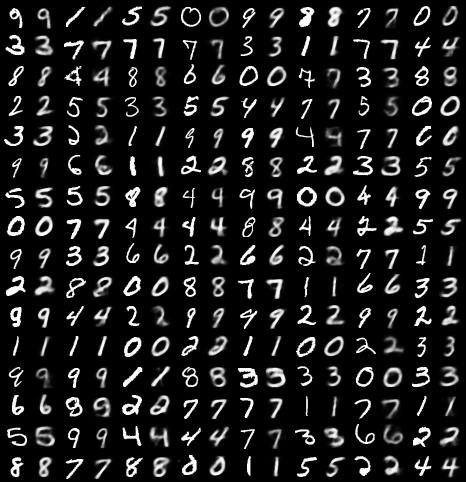 9 9 1 1 5 5 0 0 9 9 8 8 7 7 0 0
3 3 7 7 7 7 7 7 3 3 1 1 7 7 4 4
8 8 4 4 8 8 6 6 0 0 7 7 3 3 8 8
2 2 5 5 3 3 5 5 4 4 7 7 5 5 0 0
3 3 2 2 1 1 9 9 9 9 4 9 7 7 0 0
9 9 6 6 1 1 2 2 8 8 2 2 3 3 5 5
5 5 5 5 8 8 4 4 9 9 0 0 4 4 9 9
0 0 7 7 4 4 4 4 8 8 4 4 2 2 5 5
9 9 3 3 6 6 2 2 6 6 2 2 7 7 1 1
2 2 8 8 0 0 8 8 7 7 1 1 6 6 3 3
9 9 4 4 2 2 9 9 9 9 2 2 9 9 2 2
1 1 1 1 0 0 2 2 1 1 0 0 2 2 3 3
9 9 9 9 1 1 8 8 3 3 3 3 0 0 3 3
6 6 8 9 2 2 7 7 7 7 1 1 7 7 1 1
5 5 9 9 4 4 4 4 7 7 3 3 6 6 2 2
8 8 7 7 8 8 0 0 1 1 5 5 2 2 4 4